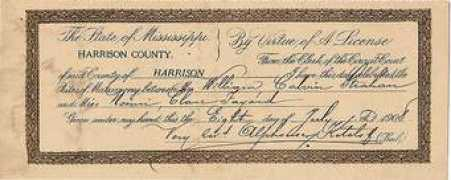 The State of Mississippi
HARRISON COUNTY.
By Virtue of A License
From the Clerk of the Circuit Court
of said County of HARRISON I have this day celebrated the
Rites of Matrimony between Mr. William Calvin
and Miss Clare
Given under my hand, this the Eight day of July A.D. 1908
(Seal)